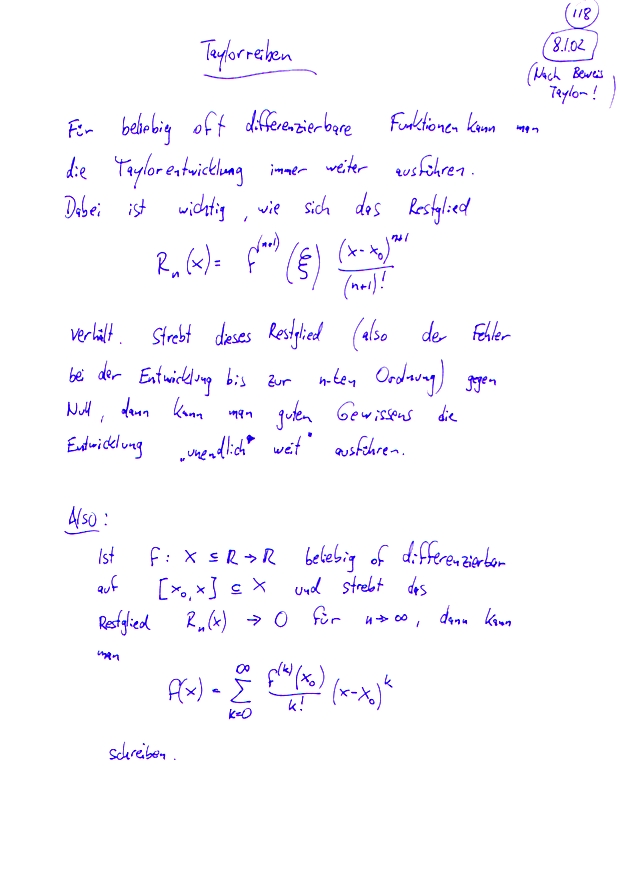 118
8.1.02
(Nach Beweis
Taylor!)
Taylorreihen
Für beliebig oft differenzierbare Funktionen kann man
die Taylorentwicklung immer weiter ausführen.
Dabei ist wichtig, wie sich das Restglied
Rₙ(x) = f⁽ⁿ⁺¹⁾(ξ) (x-x₀)ⁿ⁺¹/(n+1)!
verhält. Strebt dieses Restglied (also der Fehler
bei der Entwicklung bis zur n-ten Ordnung) gegen
Null, dann kann man guten Gewissens die
Entwicklung „unendlich" weit" ausführen.
Also:
Ist f: X ⊆ ℝ → ℝ beliebig of differenzierbar
auf [x₀, x] ⊆ X und strebt das
Restglied Rₙ(x) → 0 für n → ∞, dann kann
man
f(x) = ∑_{k=0}^{∞} f⁽ᵏ⁾(x₀)/k! (x-x₀)ᵏ
schreiben.